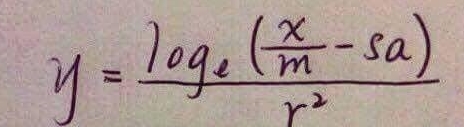 y = log_e (x/m - sa) / r²